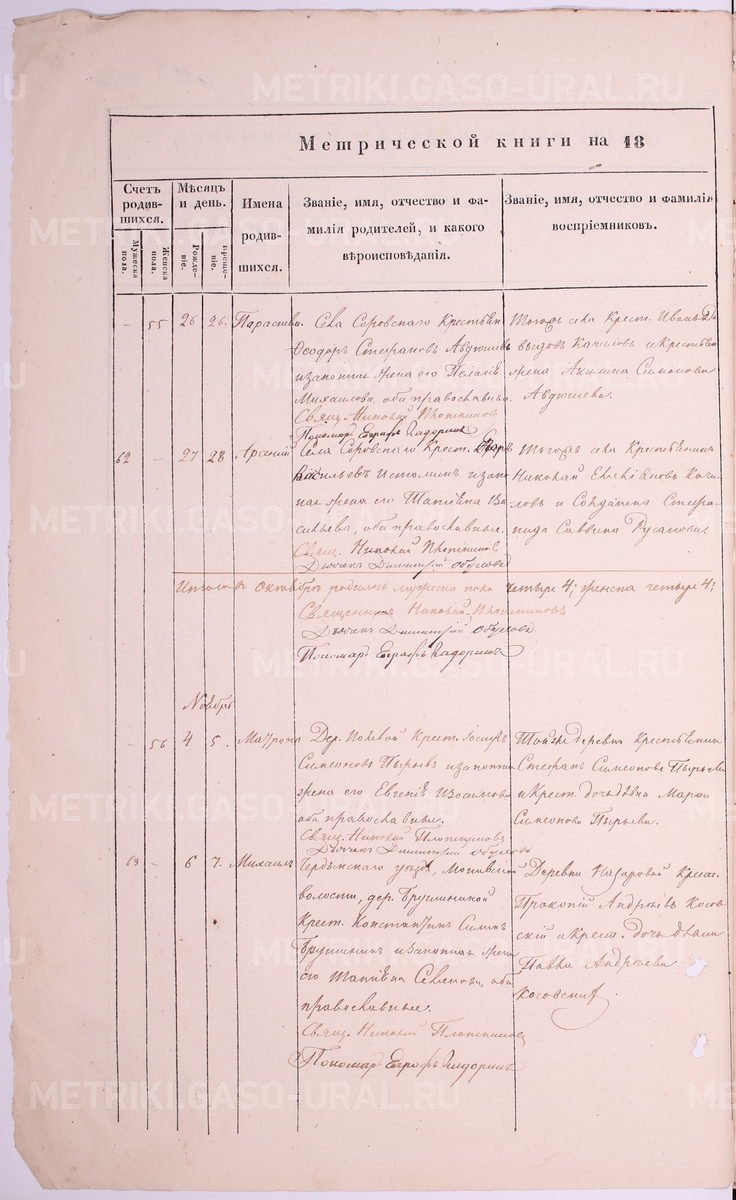 Метрической книги на 18
Счетъ родив-шихся.
Мужеска пола.
Женска пола.
Мѣсяцъ и день.
Рожде-ніе.
Креще-ніе.
Имена родив-шихся.
Званіе, имя, отчество и фа-
милія родителей, и какого
вѣроисповѣданія.
Званіе, имя, отчество и фамилія
воспріемниковъ.
- 55 26 26. Параскева.
Села Соровскаго Крестьян
Ѳеодоръ Стефановъ Авдюшевъ
и законная жена его Пелагія
Михайлова, оба православные.
Свящ. Николай Плотниковъ
Пономарь Евграфъ
Тогожъ села Крест. Иванъ Да
выдовъ Качаловъ и крестьян
жена Акилина Симеонова
Авдюшева.
62 - 27 28 Арсеній
Села Соровскаго Крест.
Васильевъ Истоминъ и закон
ная жена его Ва
сильева, оба православные.
Свящ. Николай Плотниковъ
Дьячекъ Димитрій Обуховъ
Тогожъ села Крестьянинъ
Николай Качa
ловъ и Солдатка Степа
нида Саввина Русанова.
Итого въ Октябрѣ родилось мужеска пола четыре 4; женска четыре 4;
Священникъ Николай Плотниковъ
Дьячекъ Димитрій Обуховъ
Пономарь Евграфъ
Ноябрь
- 56 4 5. Матрона
Дер. Крест. Іосифъ
Симеоновъ Пырьевъ и законная
жена его Евгенія Изосимова
оба православные.
Свящ. Николай Плотниковъ
Дьячекъ Димитрій Обуховъ
Тойже деревни Крестьянинъ
Стефанъ Симеоновъ Пырьевъ
и Крест. дочь дѣвка Марѳа
Симеонова Пырьева.
63 - 6 7. Михаилъ
Чердынскаго уѣзда,
волости, дер.
Крест. Константинъ
и законная жена
его оба
православные.
Свящ. Николай Плотниковъ
Пономарь Евграфъ
Деревни Назаровой Крест.
Прокопій Андреевъ Косов
скій и Крест. дочь дѣвка
Павла Андреева
Косовская.
METRIKI.GASO-URAL.RU